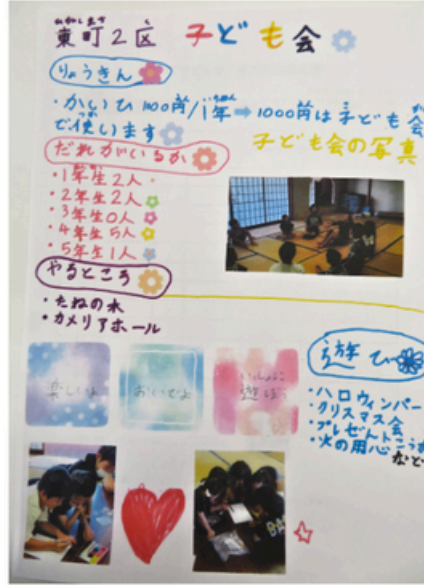 ひがしまち く
東町2区 子ども会
りょうきん
・かいひ1000円/1年➡1000円は子ども会
で使います
子ども会の写真
だれがいるか
・1年生2人
・2年生2人
・3年生0人
・4年生5人
・5年生1人
やるところ
・たねの木
・カメリアホール
楽しいよ
おいでよ
いっしょに
遊ぼう
遊び
・ハロウィンパー
・クリスマス会
・プレゼントこうか
・火の用心
など